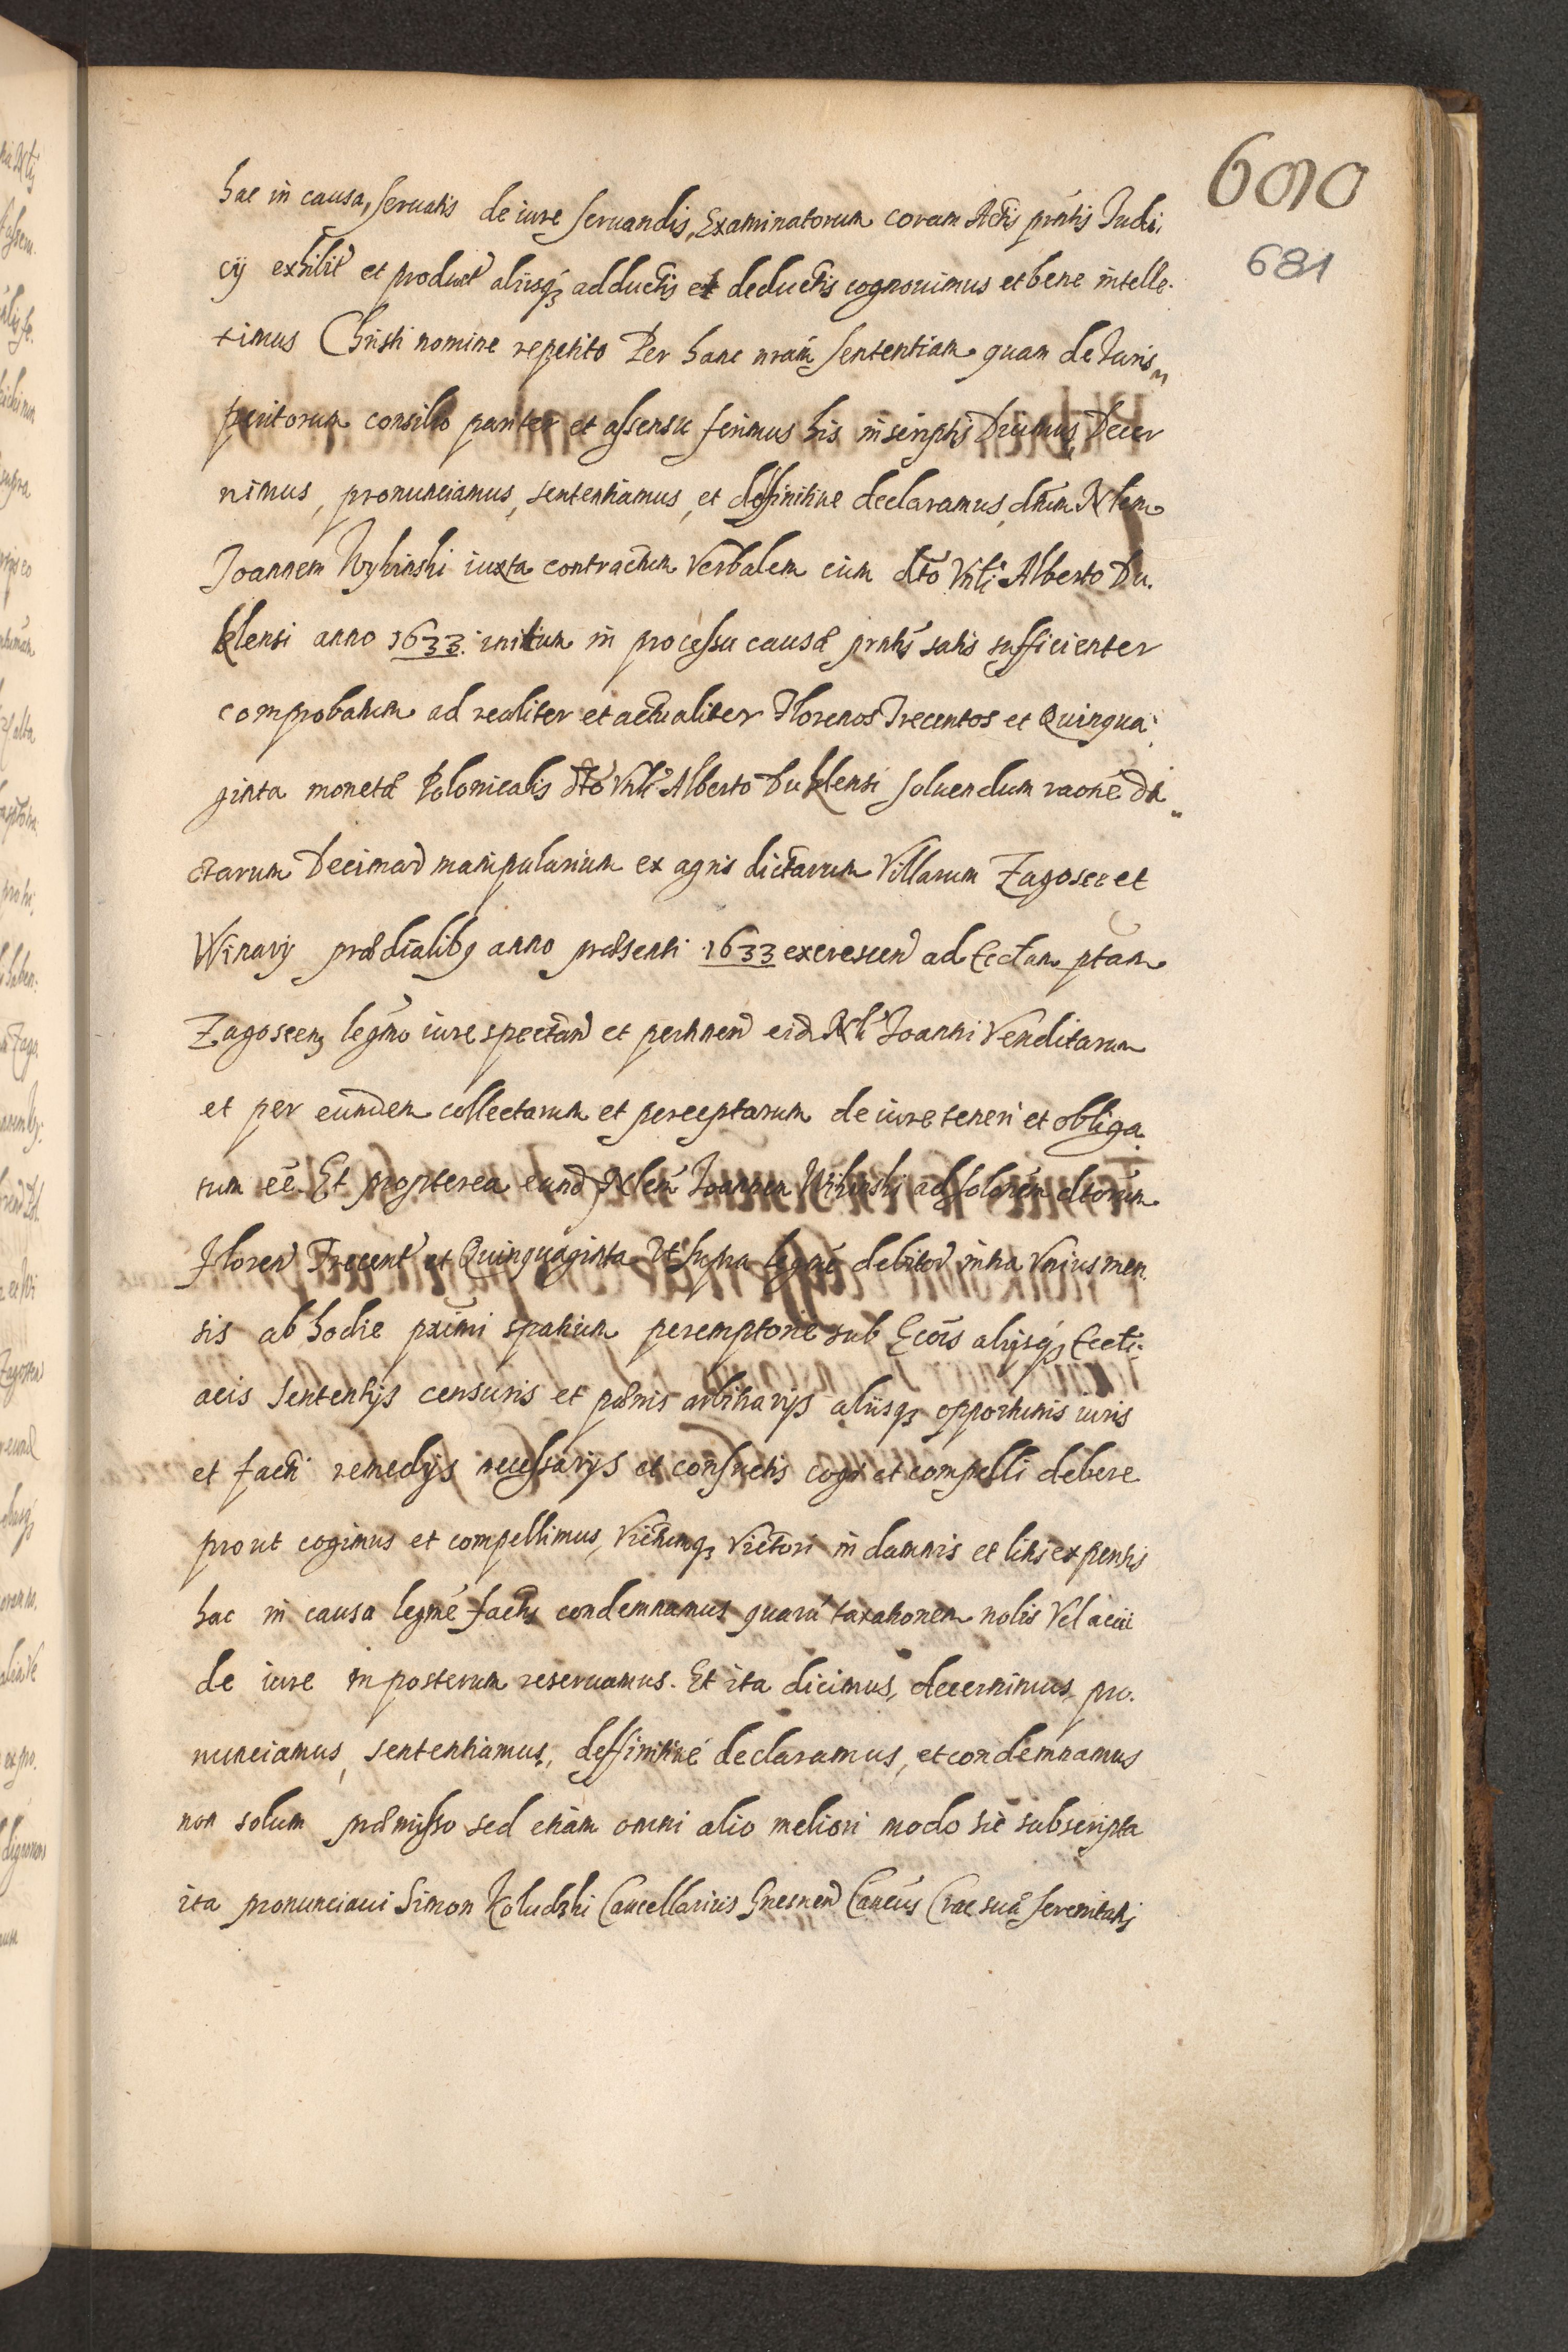 600
681
hac in causa, seruatis de iure seruandis, Examinatorum coram Actis pntis Judi,
cij exhibit et product alijsq adductis et deductis cognouimus et bene intelle-
ximus Christi nomine repetito Per hanc nram sententiam quam de Juris
peritorum consilio pariter et assensu ferimus his in scriptis Dicimus, Decer
nimus, pronunciamus, sententiamus, et deffinitiue declaramus, dnum Nlem
Joannem iuxta contractum verbalem cum dto Vnli Alberto Du.
klensi anno 1633. initum in processu causæ pntis satis sufficienter
comprobatum ad realiter et actualiter Florenos Trecentos et Quinqua:
ginta monetæ Polonicalis dto Vnli Alberto Duklensi soluendum raone di
ctarum Decimar manipularium ex agris dictarum Villarum Zagoscz et
Winary prædialibq anno præsenti 1633 excrescen ad Ecclam ptam
Zagoscen legmo iure spectan et pertinen eid Nli Joanni Venditarum
et per eundem collectarum et perceptarum de iure teneri et obliga.
tum eē. Et propterea eund Nlem Joannem ad solonem dtorum
Floren Trecent et Quinquaginta Vt supra legme debitor intra Vnius men.
sis ab hodie pximi spatium peremptorie sub Ecois alijsq Eccti:
acis sententijs censuris et pœnis arbitrarijs aliisq opportunis iuris
et facti remedijs necessarijs et consuetis cogi et compelli debere
prout cogimus et compellimus, Victumq Victori in damnis et litis expensis
hac in causa legme factis condemnamus quaru taxationem nobis Vel
de iure in posterum reseruamus. Et ita dicimus, decernimus, pro.
nunciamus, sententiamus, deffinitiué declaramus, et condemnamus
non solum præmisso sed etiam omni alio meliori modo sic subscripta
ita pronunciaui Simon Koludzki Cancellarius Gnesnen Cancus Crac suæ serenitatis